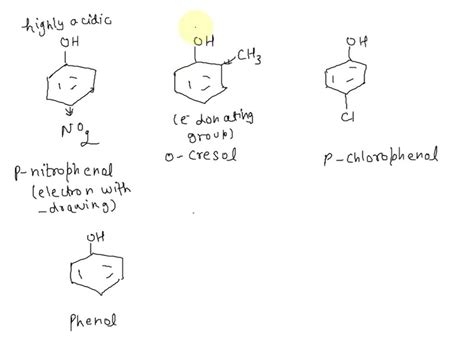 highly acidic
OH
NO2
P-nitrophenol
(electron with
-drawing)
OH
CH3
(e⁻ donating
group)
o-cresol
OH
Cl
P-chlorophenol
OH
Phenol